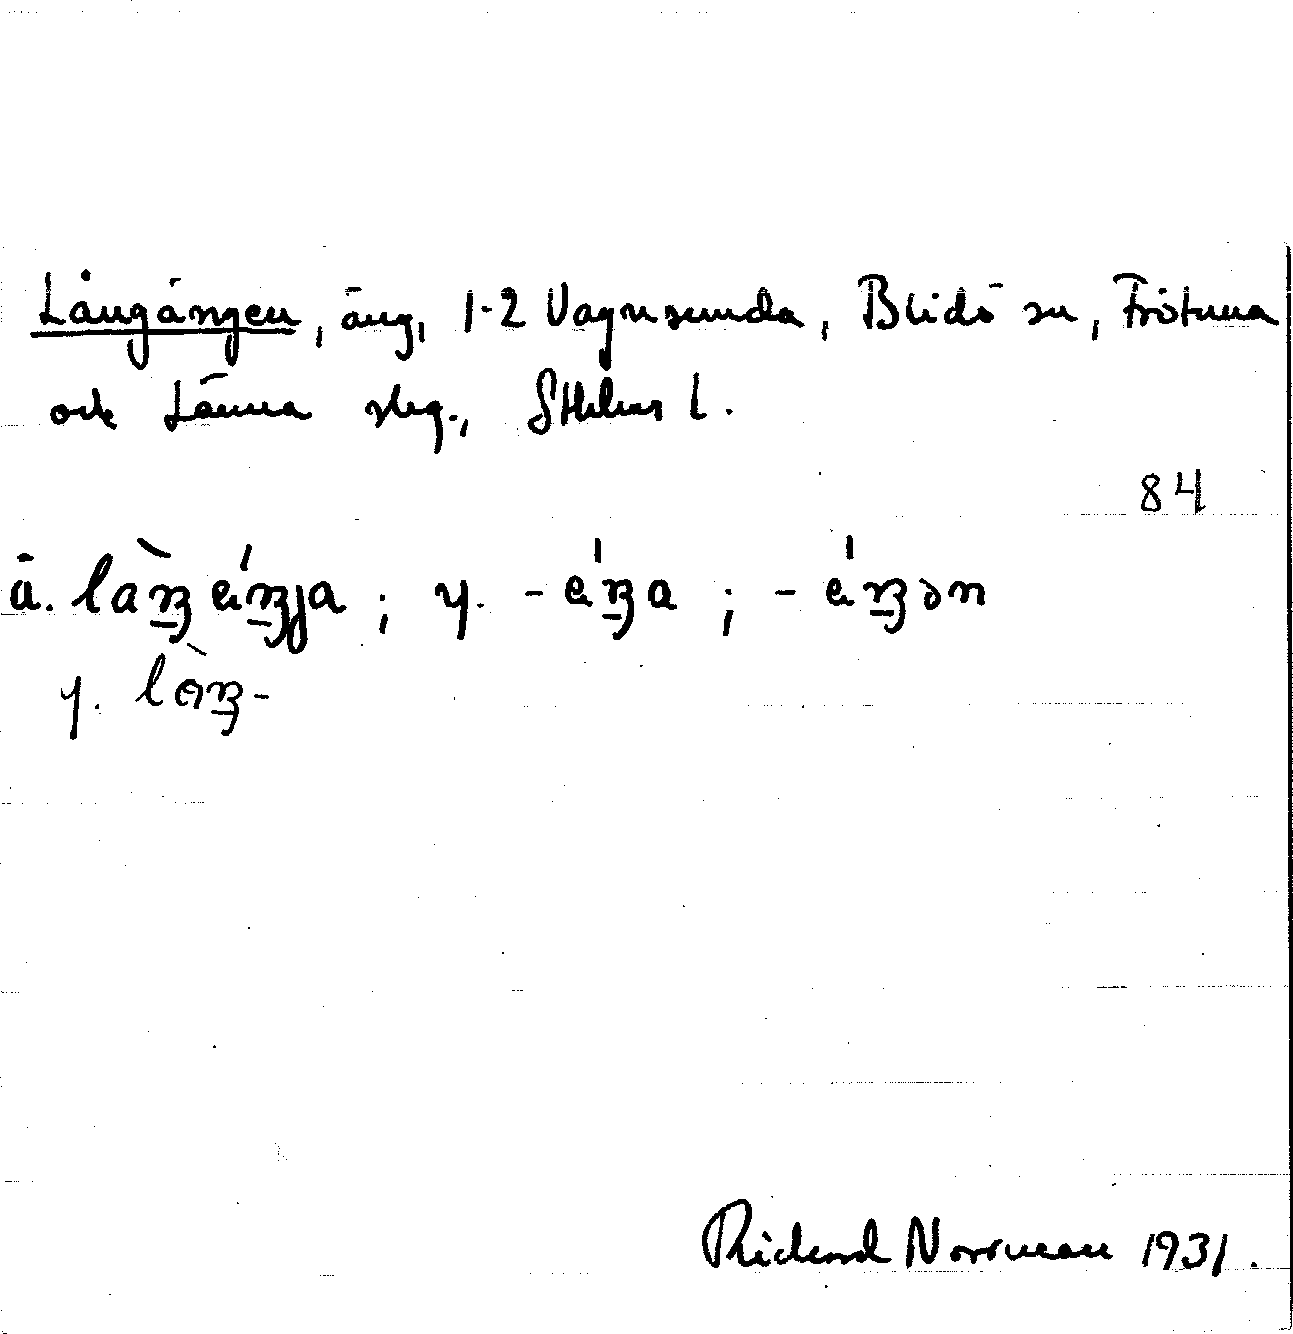 Långängen, äng, 1-2 Vagnsunda, Blidö sn, Frötuna
och Länna skg., Sthlms l.
84
ä. làŋ éŋja ; y. - éŋa ; - éŋən
y. lòŋ-
Rickard Norrman 1931.